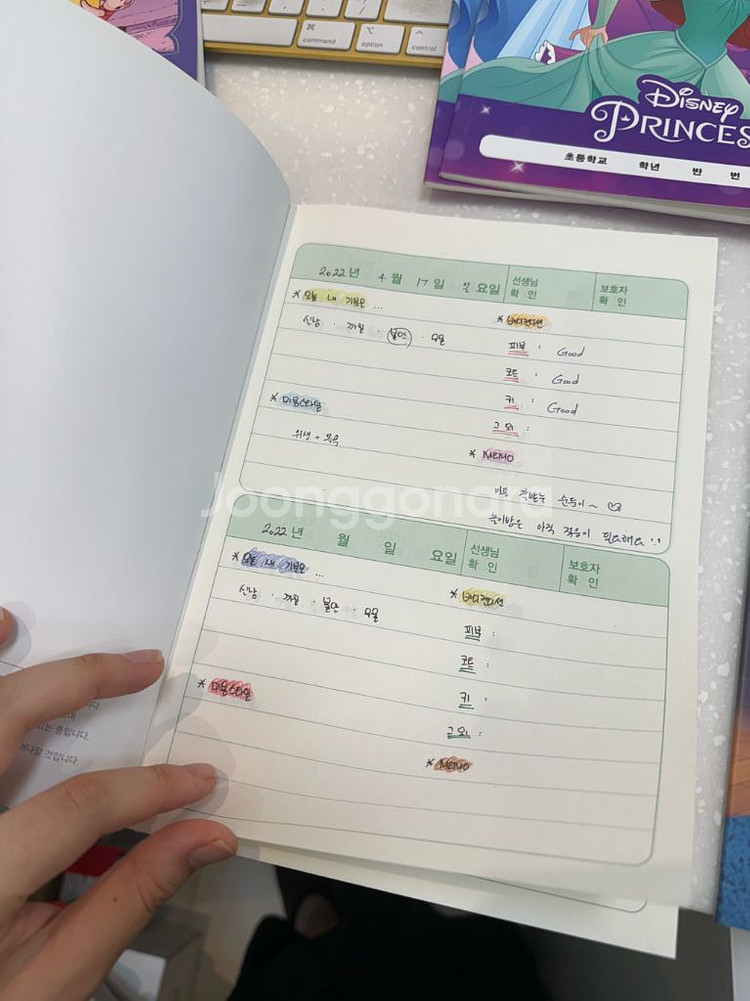 command
option
control
Disney
PRINCESS
초등학교 학년 반 번
2022년 4월 17일 일요일
선생님 확인
보호자 확인
* 오늘 내 기분은 ...
신남 · 까칠 · 불안 · 우울
* 바디컨디션
피부 : Good
코트 : Good
귀 : Good
그 외 :
* 미용스타일
위생 + 목욕
* MEMO
미용 잘받는 순둥이~
놀이방은 아직 적응이 필요해요 :)
Joonggonara
2022년 월 일 요일
선생님 확인
보호자 확인
* 오늘 내 기분은 ...
신남 · 까칠 · 불안 · 우울
* 바디컨디션
피부 :
코트 :
귀 :
그 외 :
* 미용스타일
* MEMO
니다.
있는 중입니다.
어나갈 것입니다.